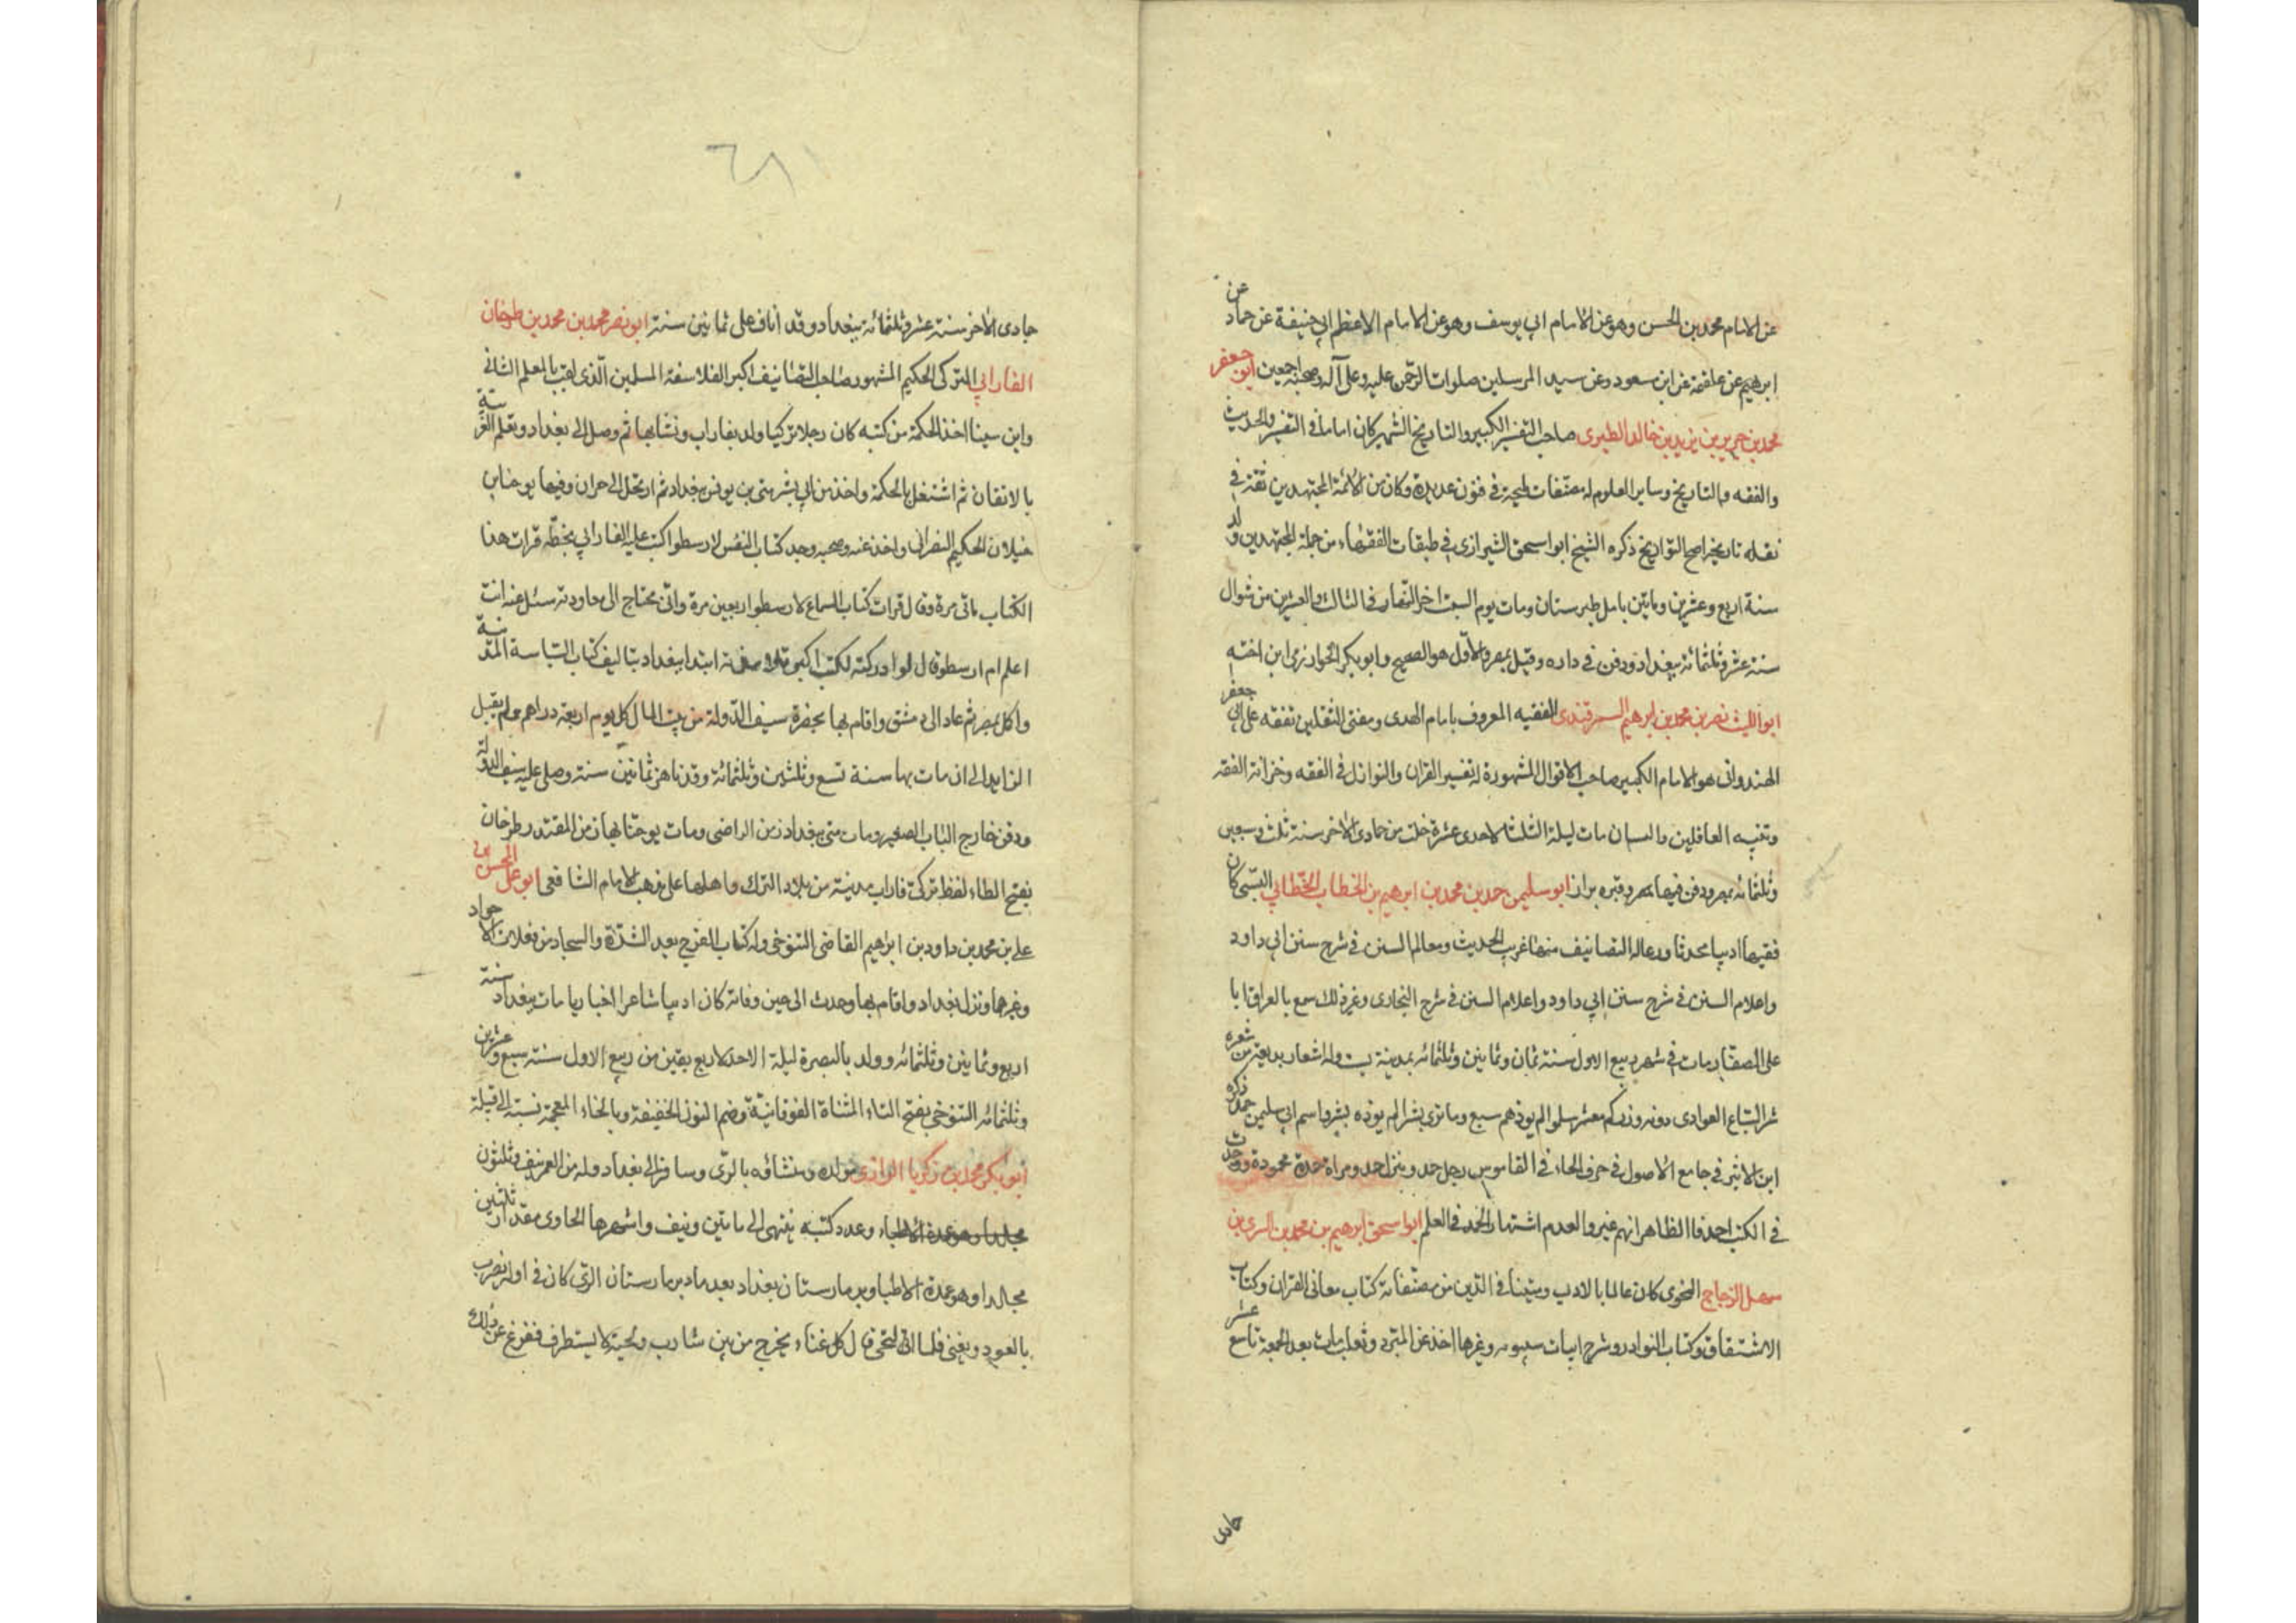 عن الامام محمد بن الحسن وهو عن الامام ابي يوسف وهو عن الامام الاعظم ابي حنيفة عن حماد عن
ابرهيم عن علقمة عن ابن مسعود وعن سيد المرسلين صلوات الرحمن عليه وعلى آله وصحبه اجمعين ابو جعفر
محمد بن جرير بن يزيد بن خالد الطبري صاحب التفسير الكبير والتاريخ الشهير كان اماما في التفسير والحديث
والفقه والتاريخ وساير العلوم له مصنفات مليحة في فنون عديدة وكان من الائمة المجتهدين ثقة في
نقله تاريخه اصح التواريخ ذكره الشيخ ابو اسحق الشيرازي في طبقات الفقهاء من جملة المجتهدين ولد
سنة اربع وعشرين وماتين بامل طبرستان ومات يوم السبت اخر النهار في الثالث والعشرين من شوال
سنة عشر وثلثمائة ببغداد ودفن في داره وقيل بمصر والاول هو الصحيح وابو بكر الخوارزمي ابن اخته
ابو الليث نصر بن محمد بن ابرهيم السمرقندي الفقيه المعروف بامام الهدى ومفتي الثقلين تفقه على ابي جعفر
الهندواني هو الامام الكبير صاحب الاقوال المشهورة له تفسير القران والنوازل في الفقه وخزانة الفقه
وتنبيه الغافلين والبستان مات ليلة الثلثا لاحدى عشرة خلت من جمادى الاخر سنة ثلث وسبعين
وثلثمائه بمصر ودفن فيها وقبره يزار ابو سليمن حمد بن محمد بن ابرهيم بن الخطاب الخطابي البستي كان
فقيها اديبا محدثا وله التصانيف منها غريب الحديث ومعالم السنن في شرح سنن ابي داود
واعلام السنن في شرح سنن ابي داود واعلام السنن في شرح البخاري وغير ذلك سمع بالعراق ابا
على الصفار مات في شهر ربيع الاول سنة ثمان وثمانين وثلثمائه بمدينة بست وله اشعار بديعة من شعره
شر السباع العوادي دونه وزر كم معشر سلموا لم يوذهم سبع وما ترى بشرا لم يوذه بشر واسم ابي سليمن حمد ذكره
ابن الاثير في جامع الاصول في حرف الحاء في القاموس رجل حمد ومنزل حمد ومراة حمدة محمودة ووجدت
في الكتب احمد فالظاهر انهم غيروا لعدم اشتهار الحمد في العلم ابو اسحق ابرهيم بن محمد بن السري بن
سهل الزجاج النحوي كان عالما بالادب ومتينا في الدين من مصنفاته كتاب معاني القران وكتاب
الاشتقاق وكتاب النوادر وشرح ابيات سيبويه وغيرها اخذ عن المبرد وثعلب مات بعد الجمعة تاسع عشر
جمادى
جمادى الاخر سنة عشر وثلثمائة ببغداد وقد اناف على ثمانين سنة ابو نصر محمد بن محمد بن طرخان
الفارابي التركي الحكيم المشهور صاحب التصانيف اكبر الفلاسفة المسلمين الذي لقب بالمعلم الثاني
وابن سينا اخذ الحكمة من كتبه كان رجلا تركيا ولد بفاراب ونشا بها ثم وصل الى بغداد وتعلم العربية
بالاتقان ثم اشتغل بالحكمة واخذ من ابي بشر متى بن يونس ببغداد ثم ارتحل الى حران وفيها يوحنا بن
خيلان الحكيم النصراني واخذ عنه وصحبه وجد كتاب النفس لارسطوا كتب عليه الفارابي بخطه قرات هذا
الكتاب ماتى مرة وقال قرات كتاب السماع لارسطو اربعين مرة واني محتاج الى معاودته سئل عنه انت
اعلم ام ارسطو قال لو ادركته لكنت اكبر تلامذته ابتدا ببغداد بتاليف كتاب السياسة المدنية
واكمل بمصر ثم عاد الى دمشق واقام بها بحضرة سيف الدولة من بيت المال كل يوم اربعة دراهم ولم يقبل
الزايد الى ان مات بها سنة تسع وثلثين وثلثمائة وقد ناهز ثمانين سنة وصلى عليه سيف الدولة
ودفن خارج الباب الصغير ومات متى ببغداد زمن الراضي ومات يوحنا بها زمن المقتدر طرخان
بفتح الطاء لفظ تركي فاراب مدينة من بلاد الترك واهلها على مذهب الامام الشافعي ابو علي الحسن بن
علي بن محمد بن داود بن ابرهيم القاضي التنوخي وله كتاب الفرج بعد الشدة والسجاد من فعلات الاجواد
وغيرها ونزل بغداد واقام بها وحدث الى حين وفاته كان اديبا شاعرا اخباريا مات ببغداد سنة
اربع وثمانين وثلثمائه وولد بالبصرة ليلة الاحد لاربع بقين من ربيع الاول سنة سبع وعشرين
وثلثمائه التنوخي بفتح التاء المثناة الفوقانية وضم النون الخفيفة وبالخاء المعجمة نسبة الى قبيلة
ابو بكر محمد بن زكريا الرازي مولده ومنشاؤه بالري وسافر الى بغداد وله من العمر نيف وثلثون
مجلدا وهو عمدة الاطباء وعدد كتبه ينتهي الى ماتين ونيف واشهرها الحاوي مقدار ثلثين
مجلدا وهو عمدة الاطبا دبر مارستان بغداد بعد ما دبر مارستان الري كان في اوله يضرب
بالعود ويغني فلما التحى قال كل غناء يخرج من بين شارب ولحية لا يستطرف ففرغ عن ذلك